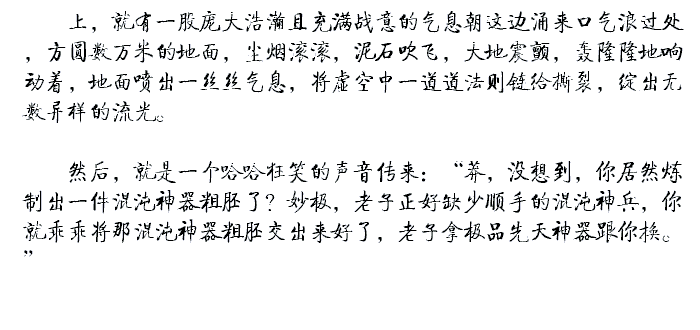 上，就有一股庞大浩瀚且充满战意的气息朝这边涌来口气浪过处
，方圆数万米的地面，尘烟滚滚，泥石吹飞，大地震颤，轰隆隆地响
动着，地面喷出一丝丝气息，将虚空中一道道法则链给撕裂，绽出无
数异样的流光。
然后，就是一个哈哈狂笑的声音传来：“莽，没想到，你居然炼
制出一件混沌神器粗胚了？妙极，老子正好缺少顺手的混沌神兵，你
就乖乖将那混沌神器粗胚交出来好了，老子拿极品先天神器跟你换。
”